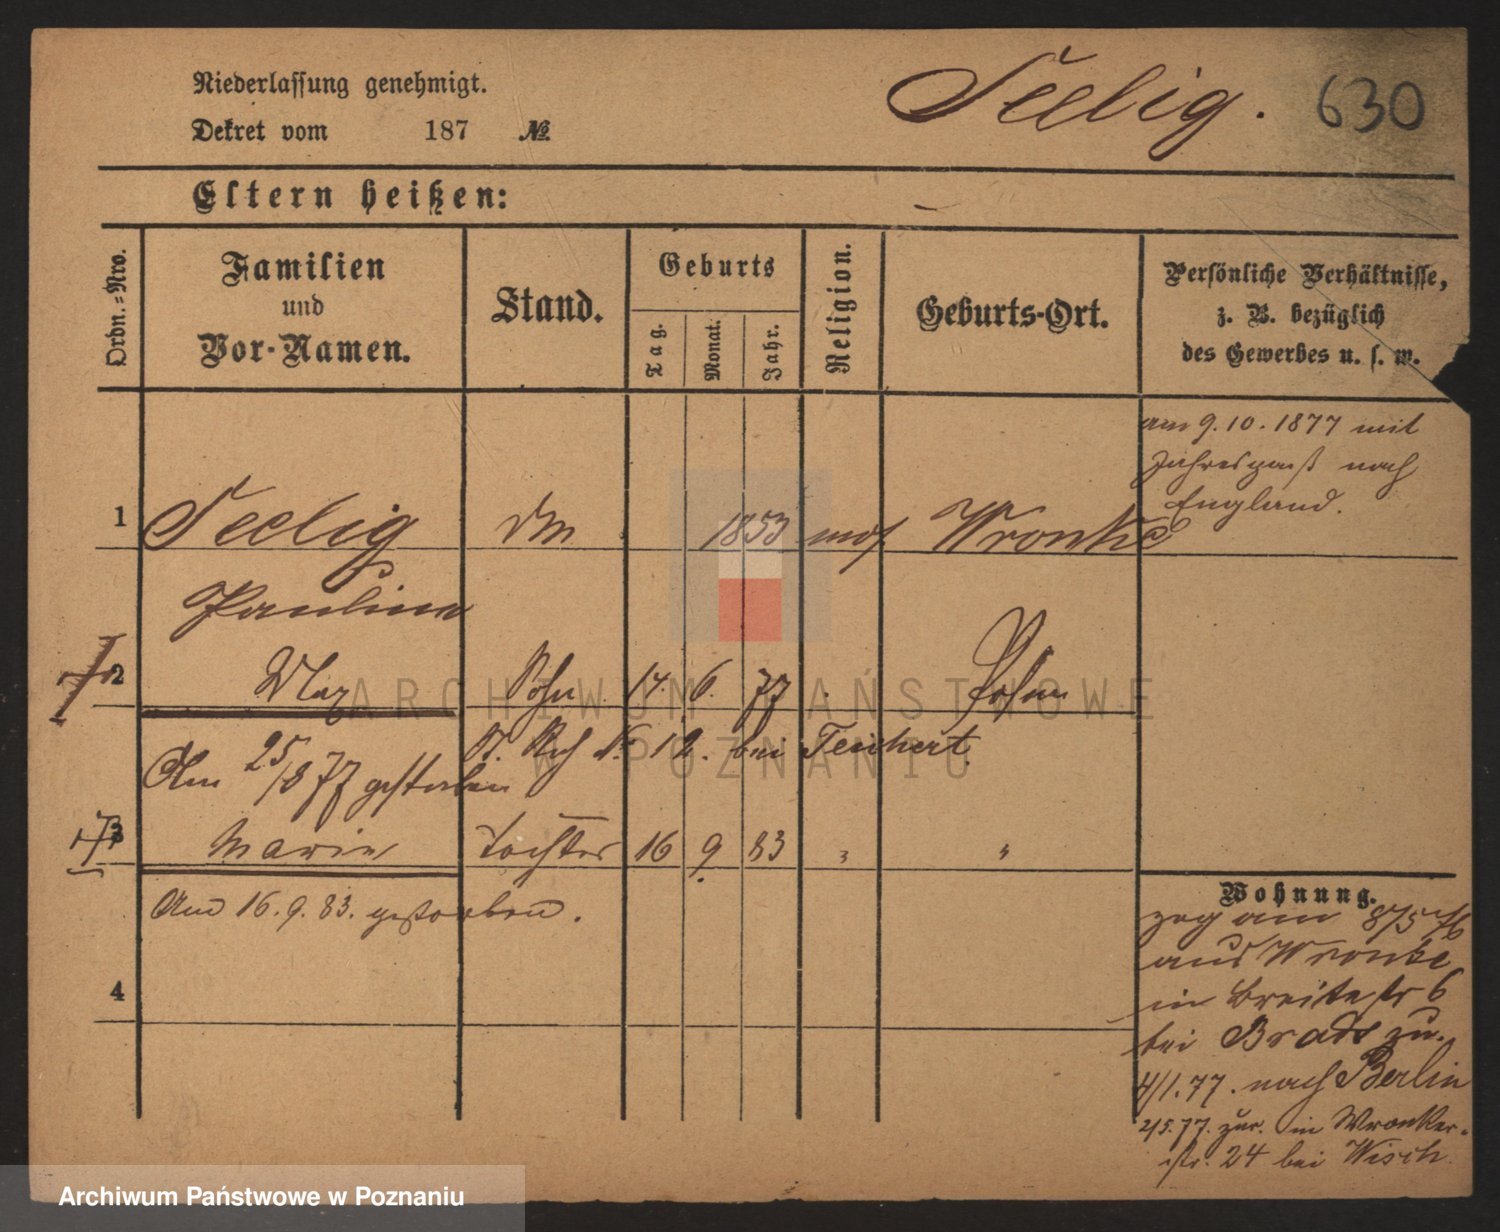 Niederlassung genehmigt.
Dekret vom 187 №
Seelig. 630
Eltern heißen:
Ordn.-Nro.
Familien
und
Vor-Namen.
Stand.
Geburts
Tag.
Monat.
Jahr.
Religion.
Geburts-Ort.
Persönliche Verhältnisse,
z. B. bezüglich
des Gewerbes u. s. w.
am 9.10.1877 mit
Jahrespaß nach
England.
1 Seelig 1853 mos Wronke
Paulina
2 Max Sohn 14. 6. 77 Posen
No 12. bei Teichert.
Am 25/8 77 gestorben
3 Marie Tochter 16 9 83 " "
Am 16.9.83. gestorben.
4
Wohnung.
zog am 8/5 76
aus Wronke
in Breitestr 6
bei zu.
4/1.77. nach Berlin
2/5.77. zur. in Wronker-
str. 24 bei Wisch
ARCHIWUM PAŃSTWOWE
W POZNANIU
Archiwum Państwowe w Poznaniu